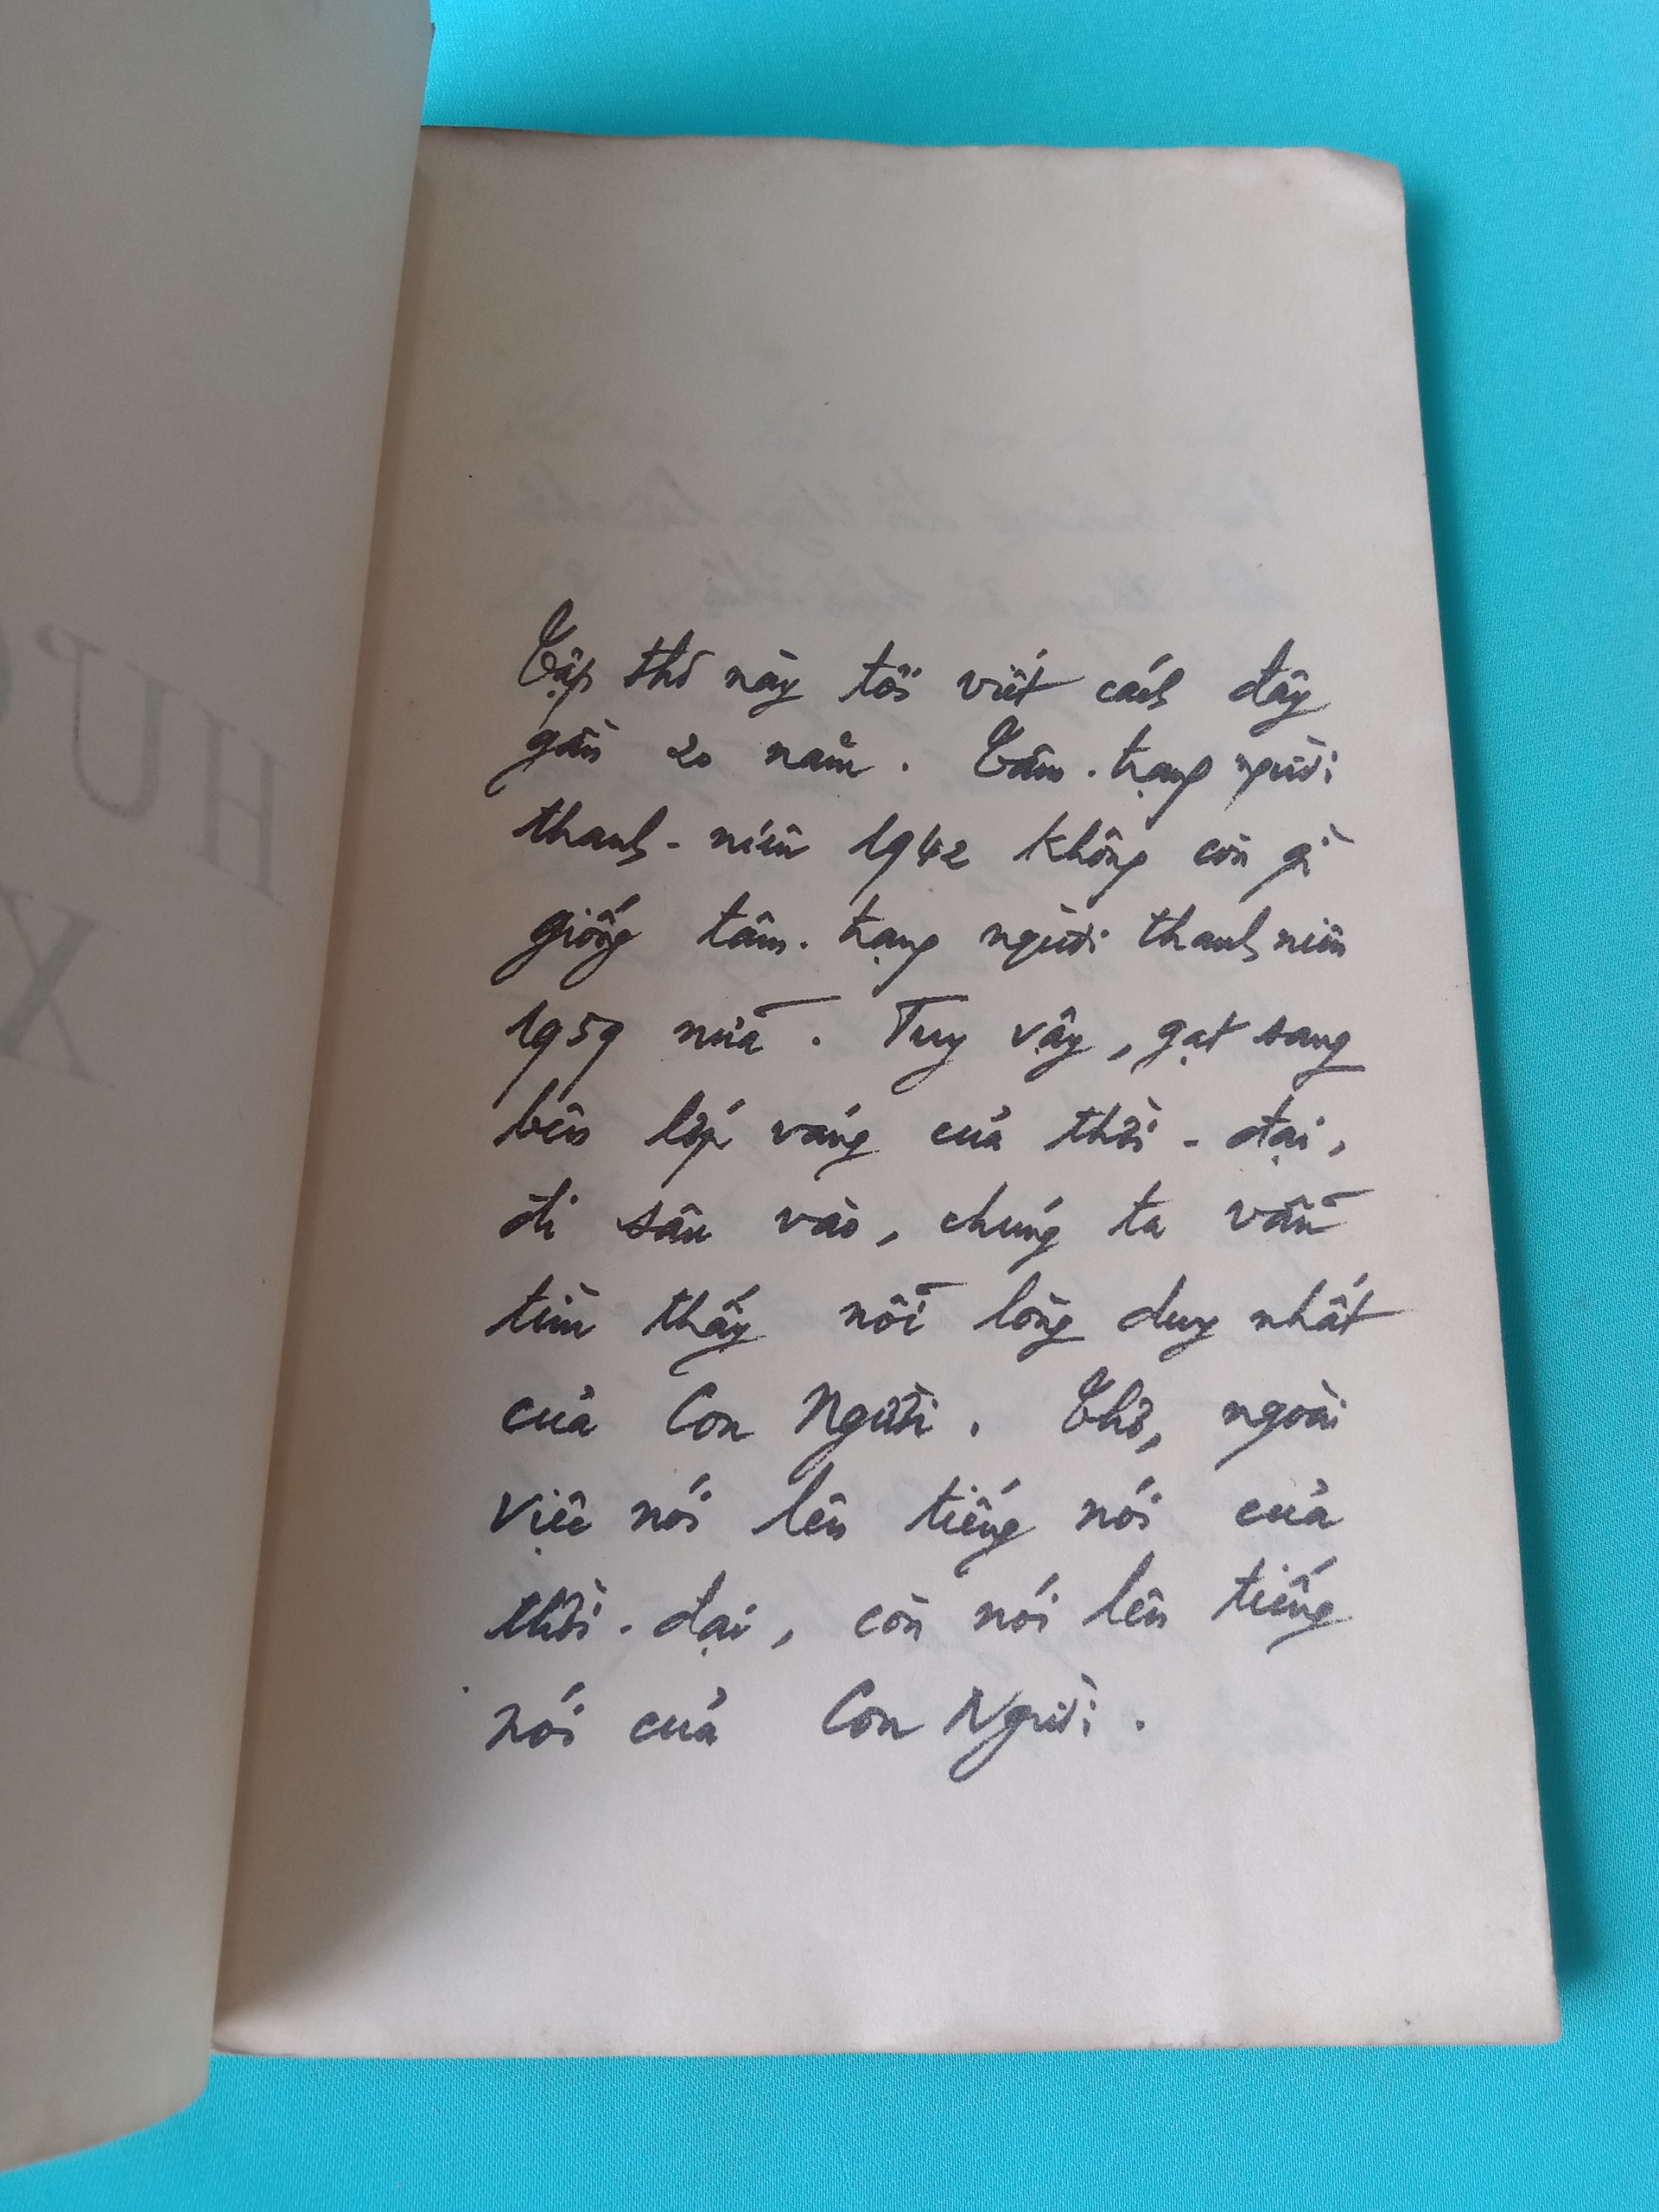 HƯ
X
Tập thơ này tôi viết cách đây
gần 20 năm. Tâm-trạng người
thanh-niên 1942 không còn gì
giống tâm-trạng người thanh niên
1959 nữa. Tuy vậy, gạt sang
bên lớp váng của thời-đại,
đi sâu vào, chúng ta vẫn
tìm thấy nỗi lòng duy nhất
của Con Người. Thơ, ngoài
việc nói lên tiếng nói của
thời-đại, còn nói lên tiếng
nói của Con Người.